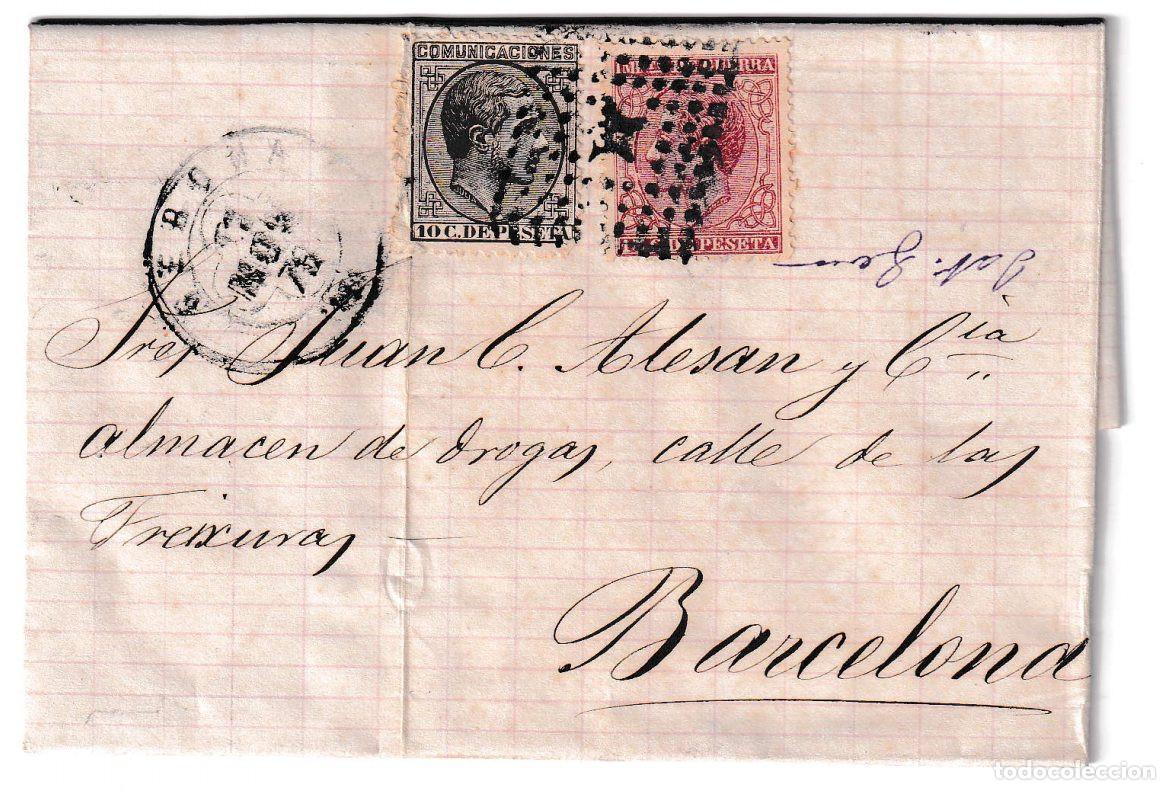 COMUNICACIONES
10 C. DE PESETA
C. DE PESETA
GERONA
NOV
Sres Juan C. Alesan y Cia
almacen de drogas, calle de las
Freixuras
Barcelona
todocoleccion